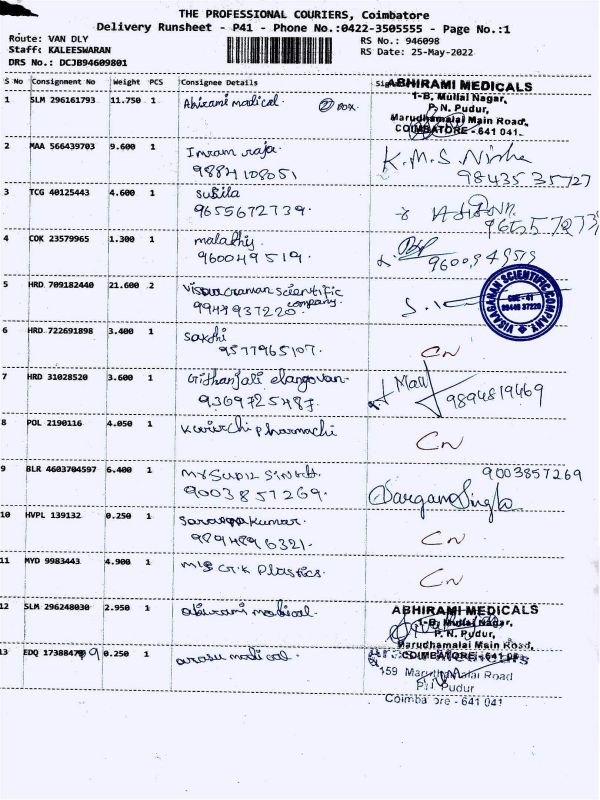 THE PROFESSIONAL COURIERS, Coimbatore
Delivery Runsheet - P41 - Phone No.:0422-3505555 - Page No.:1
Route: VAN DLY RS No.: 946098
Staff: KALEESWARAN RS Date: 25-May-2022
DRS No.: DCJB94609801
S No Consignment No Weight PCS Consignee Details
ABHIRAMI MEDICALS
1 SLM 296161793 11.750 1 Abirami medical. 2 Box
1-B, Mullai Nagar,
P. N. Pudur,
Marudhamalai Main Road,
COIMBATORE - 641 041.
2 MAA 566439703 9.600 1 Imram raja K.M.S. Nisha
9884108051 98435 35727
3 TCG 40125443 4.600 1 Susila
9655672739
4 COK 23579965 1.300 1 malathy
9600949519 9600949519
5 HRD 709182440 21.600 2 Visvacraman Scientific
company.
9944937220
VISAAGANAN SCIENTIFIC COMPANY
CBE - 41
99449 37220
6 HRD 722691898 3.400 1 Sakthi
9577965107. CN
7 HRD 31028520 3.600 1 Githanjali elangovan.
9369725487 9894819469
8 POL 2190116 4.050 1 CN
9 BLR 4603704597 6.400 1 9003857269
9003857269.
10 HVPL 139132 0.250 1 CN
9894896321.
11 MYD 9983443 4.900 1 M/s G.K Plastics. CN
12 SLM 296248030 2.950 1 abirami medical
ABHIRAMI MEDICALS
1-B, Mullai Nagar,
P. N. Pudur,
Marudhamalai Main Road,
COIMBATORE - 641 041
13 EDQ 0.250 1 medical
159 Marudhamalai Road
P.N. Pudur
Coimbatore - 641 041